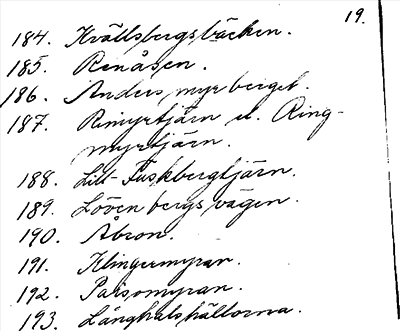 19.
184. Kvällsbergsbäcken.
185. Renåsen.
186. Anders myrberget.
187. Rimyrtjärn el. Ring-
myrtjärn.
188. Lill-Fiskbergtjärn.
189. Löven bergs vägen.
190. Åbron.
191. Klingermyran.
192. Parsomyran.
193. Långhalshällorna.